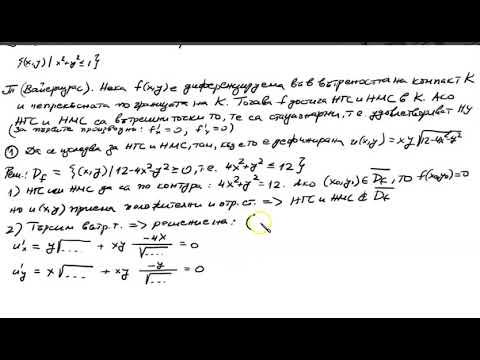 {(x,y) | x²+y² ≤ 1}
Т (Вайерщрас). Нека f(x,y) е диференцируема във вътрешността на компакт K
и непрекъсната по границата на K. Тогава f достига НГС и НМС в K. Ако
НГС и НМС са вътрешни точки то, те са стационарни, т.е. удовлетворяват НУ
(За първите производни: f'ₓ=0, f'ᵧ=0)
① Да се изследва за НГС и НМС, там, където е дефинирана u(x,y) = xy √12-4x²-y²
Реш.: D_f = {(x,y) | 12-4x²-y² ≥ 0, т.е. 4x²+y² ≤ 12}
1) НГС или НМС да са по контура: 4x²+y²=12. Ако (x₀,y₀) ∈ D_f, то f(x₀,y₀)=0
но u(x,y) приема положителни и отр. ст. => НГС и НМС ∉ D_f
2) Търсим вътр. т. => решение на: (
u'ₓ = y√... + xy -4x/√... = 0
u'ᵧ = x√... + xy -y/√... = 0